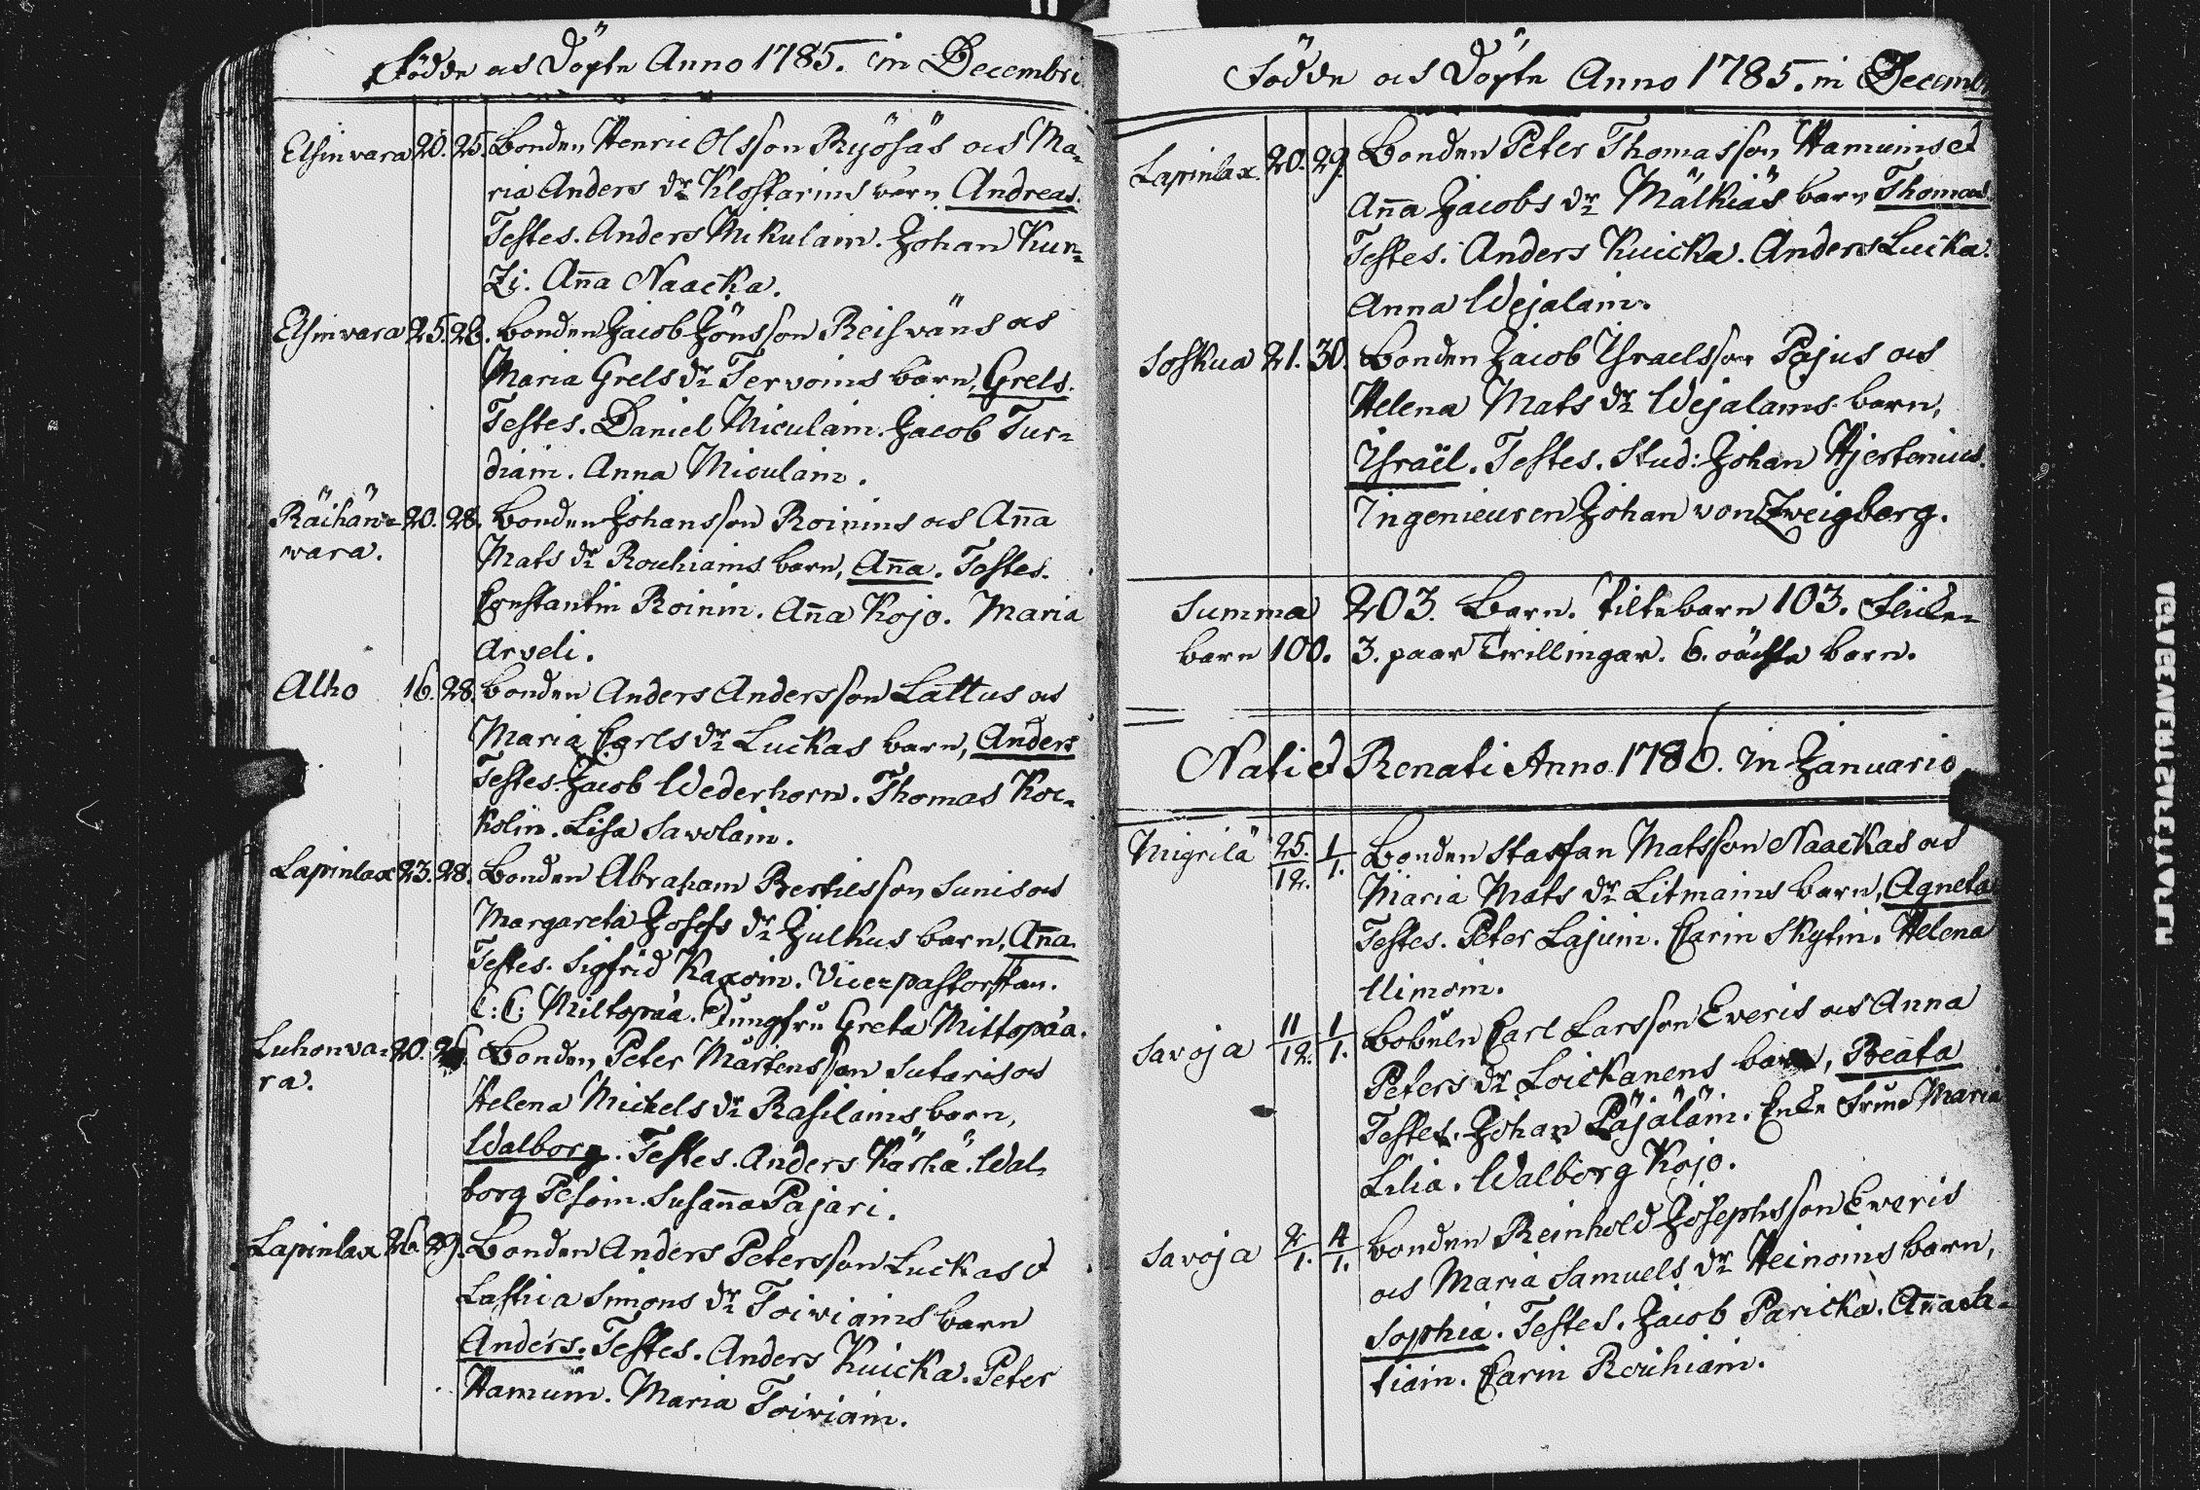 Födde och Döpte Anno 1785. in Decembri
Elsinvara 20. 25. Bonden Henric Olsson Ryösäs och Ma-
ria Anders dr Klostarins barn Andreas.
Testes. Anders Mikulain. Johan Kun-
Zi. Anna Naacka.
Elsinvara 25. 26. bonden Jacob Jönsson Reisväns och
Maria Grels dr Tervoins barn, Grels.
Testes. Daniel Miculain. Jacob Tur-
diain. Anna Miculain.
Räihän- 20. 28. bonden Johansson Roinins och Anna
wara. Mats dr Rouhiains barn, Anna. Testes.
Constantin Roinin. Anna Kojo. Maria
Arveli.
Alho 16. 28. bonden Anders Andersson Lattus och
Maria Carls dr Luckas barn, Anders
Testes. Jacob Wederhorn. Thomas Koc-
kolin. Lisa Savolain.
Lapinlax 23. 28. Bonden Abraham Bertilsson Sunis och
Margareta Josefs dr Julkus barn, Anna.
Testes. Sigfrid Kaxoin. Vice pastorskan.
C: C: Miltopaa. Jungfru Greta Miltopaa.
Luhonva- 20. Bonden Peter Mårtensson Sutaris och
ra. Helena Michels dr Rasilains barn,
Walborg. Testes. Anders Kärhä. Wal-
borg Pesoin. Susanna Pajari.
Lapinlax 26. 29. Bonden Anders Petersson Luckas et
Laskia Simons dr Toiviains barn
Anders. Testes. Anders Kuicka. Peter
Hamuin. Maria Toiviain.
Födde och Döpte Anno 1785. in Decemb
Lapinlax 20. 29. Bonden Peter Thomasson Hamuins et
Anna Jacobs dr Mälkiäs barn Thomas.
Testes. Anders Kuicka. Anders Lucka.
Anna Wejalain.
Soskua 21. 30. Bonden Jacob Israelsson Pajus och
Helena Mats dr Wejalains barn,
Israël. Testes. Stud: Johan Hjertenius.
Ingenieuren Johan von Zweigberg.
Summa 203. Barn. Piltebarn 103. Flicke-
barn 100. 3. paar Twillingar. 6. oächta barn.
Nati et Renati Anno 1786. in Januario
Migrilä 25./12. 1/1. Bonden Staffan Matsson Naackas och
Maria Mats dr Litmains barn, Agneta
Testes. Peter Lajuin. Carin Skytin. Helena
Uimoin.
Savoja 11/12. 1/1. Bobuln Carl Larsson Everis och Anna
Peters dr Loickanens barn, Beata
Testes. Johan Päjäläin. Enke Fruno Maria
Lilia. Walborg Kojo.
Savoja 2/1. 4/1. bonden Reinhold Josephsson Everis
och Maria Samuels dr Heinoins barn,
Sophia. Testes. Jacob Paricka. Anna
tiain. Carin Rouhiain.